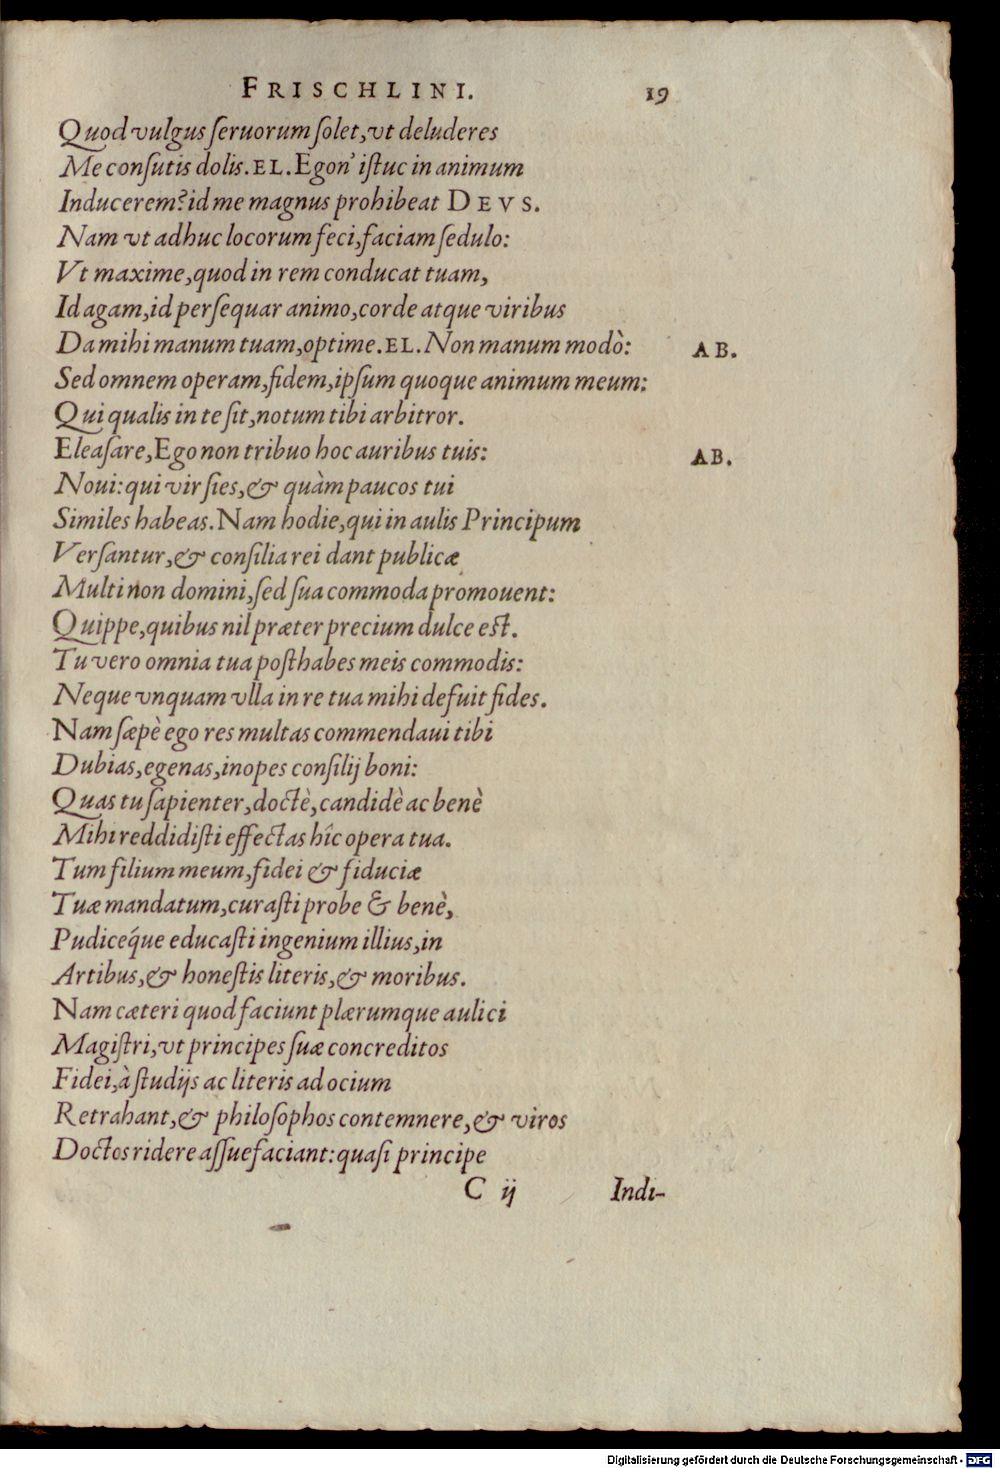 FRISCHLINI. 19
Quod vulgus ſeruorum ſolet, vt deluderes
Me conſutis dolis. EL. Egon' iſtuc in animum
Inducerem? id me magnus prohibeat DEVS.
Nam vt adhuc locorum feci, faciam ſedulo:
Vt maxime, quod in rem conducat tuam,
Id agam, id perſequar animo, corde atque viribus
Da mihi manum tuam, optime. EL. Non manum modò: AB.
Sed omnem operam, fidem, ipſum quoque animum meum:
Qui qualis in te ſit, notum tibi arbitror.
Eleaſare, Ego non tribuo hoc auribus tuis: AB.
Noui: qui vir ſies, & quàm paucos tui
Similes habeas. Nam hodie, qui in aulis Principum
Verſantur, & conſilia rei dant publicæ
Multi non domini, ſed ſua commoda promouent:
Quippe, quibus nil præter precium dulce est.
Tu vero omnia tua poſthabes meis commodis:
Neque vnquam vlla in re tua mihi defuit fides.
Nam ſæpè ego res multas commendaui tibi
Dubias, egenas, inopes conſilij boni:
Quas tu ſapienter, doctè, candidè ac benè
Mihi reddidiſti effectas hîc opera tua.
Tum filium meum, fidei & fiduciæ
Tuæ mandatum, curaſti probe & benè,
Pudiceq́ue educaſti ingenium illius, in
Artibus, & honeſtis literis, & moribus.
Nam cæteri quod faciunt plærumque aulici
Magiſtri, vt principes ſuæ concreditos
Fidei, à ſtudijs ac literis ad ocium
Retrahant, & philoſophos contemnere, & viros
Doctos ridere aſſuefaciant: quaſi principe
C ij Indi-
Digitalisierung gefördert durch die Deutsche Forschungsgemeinschaft - DFG